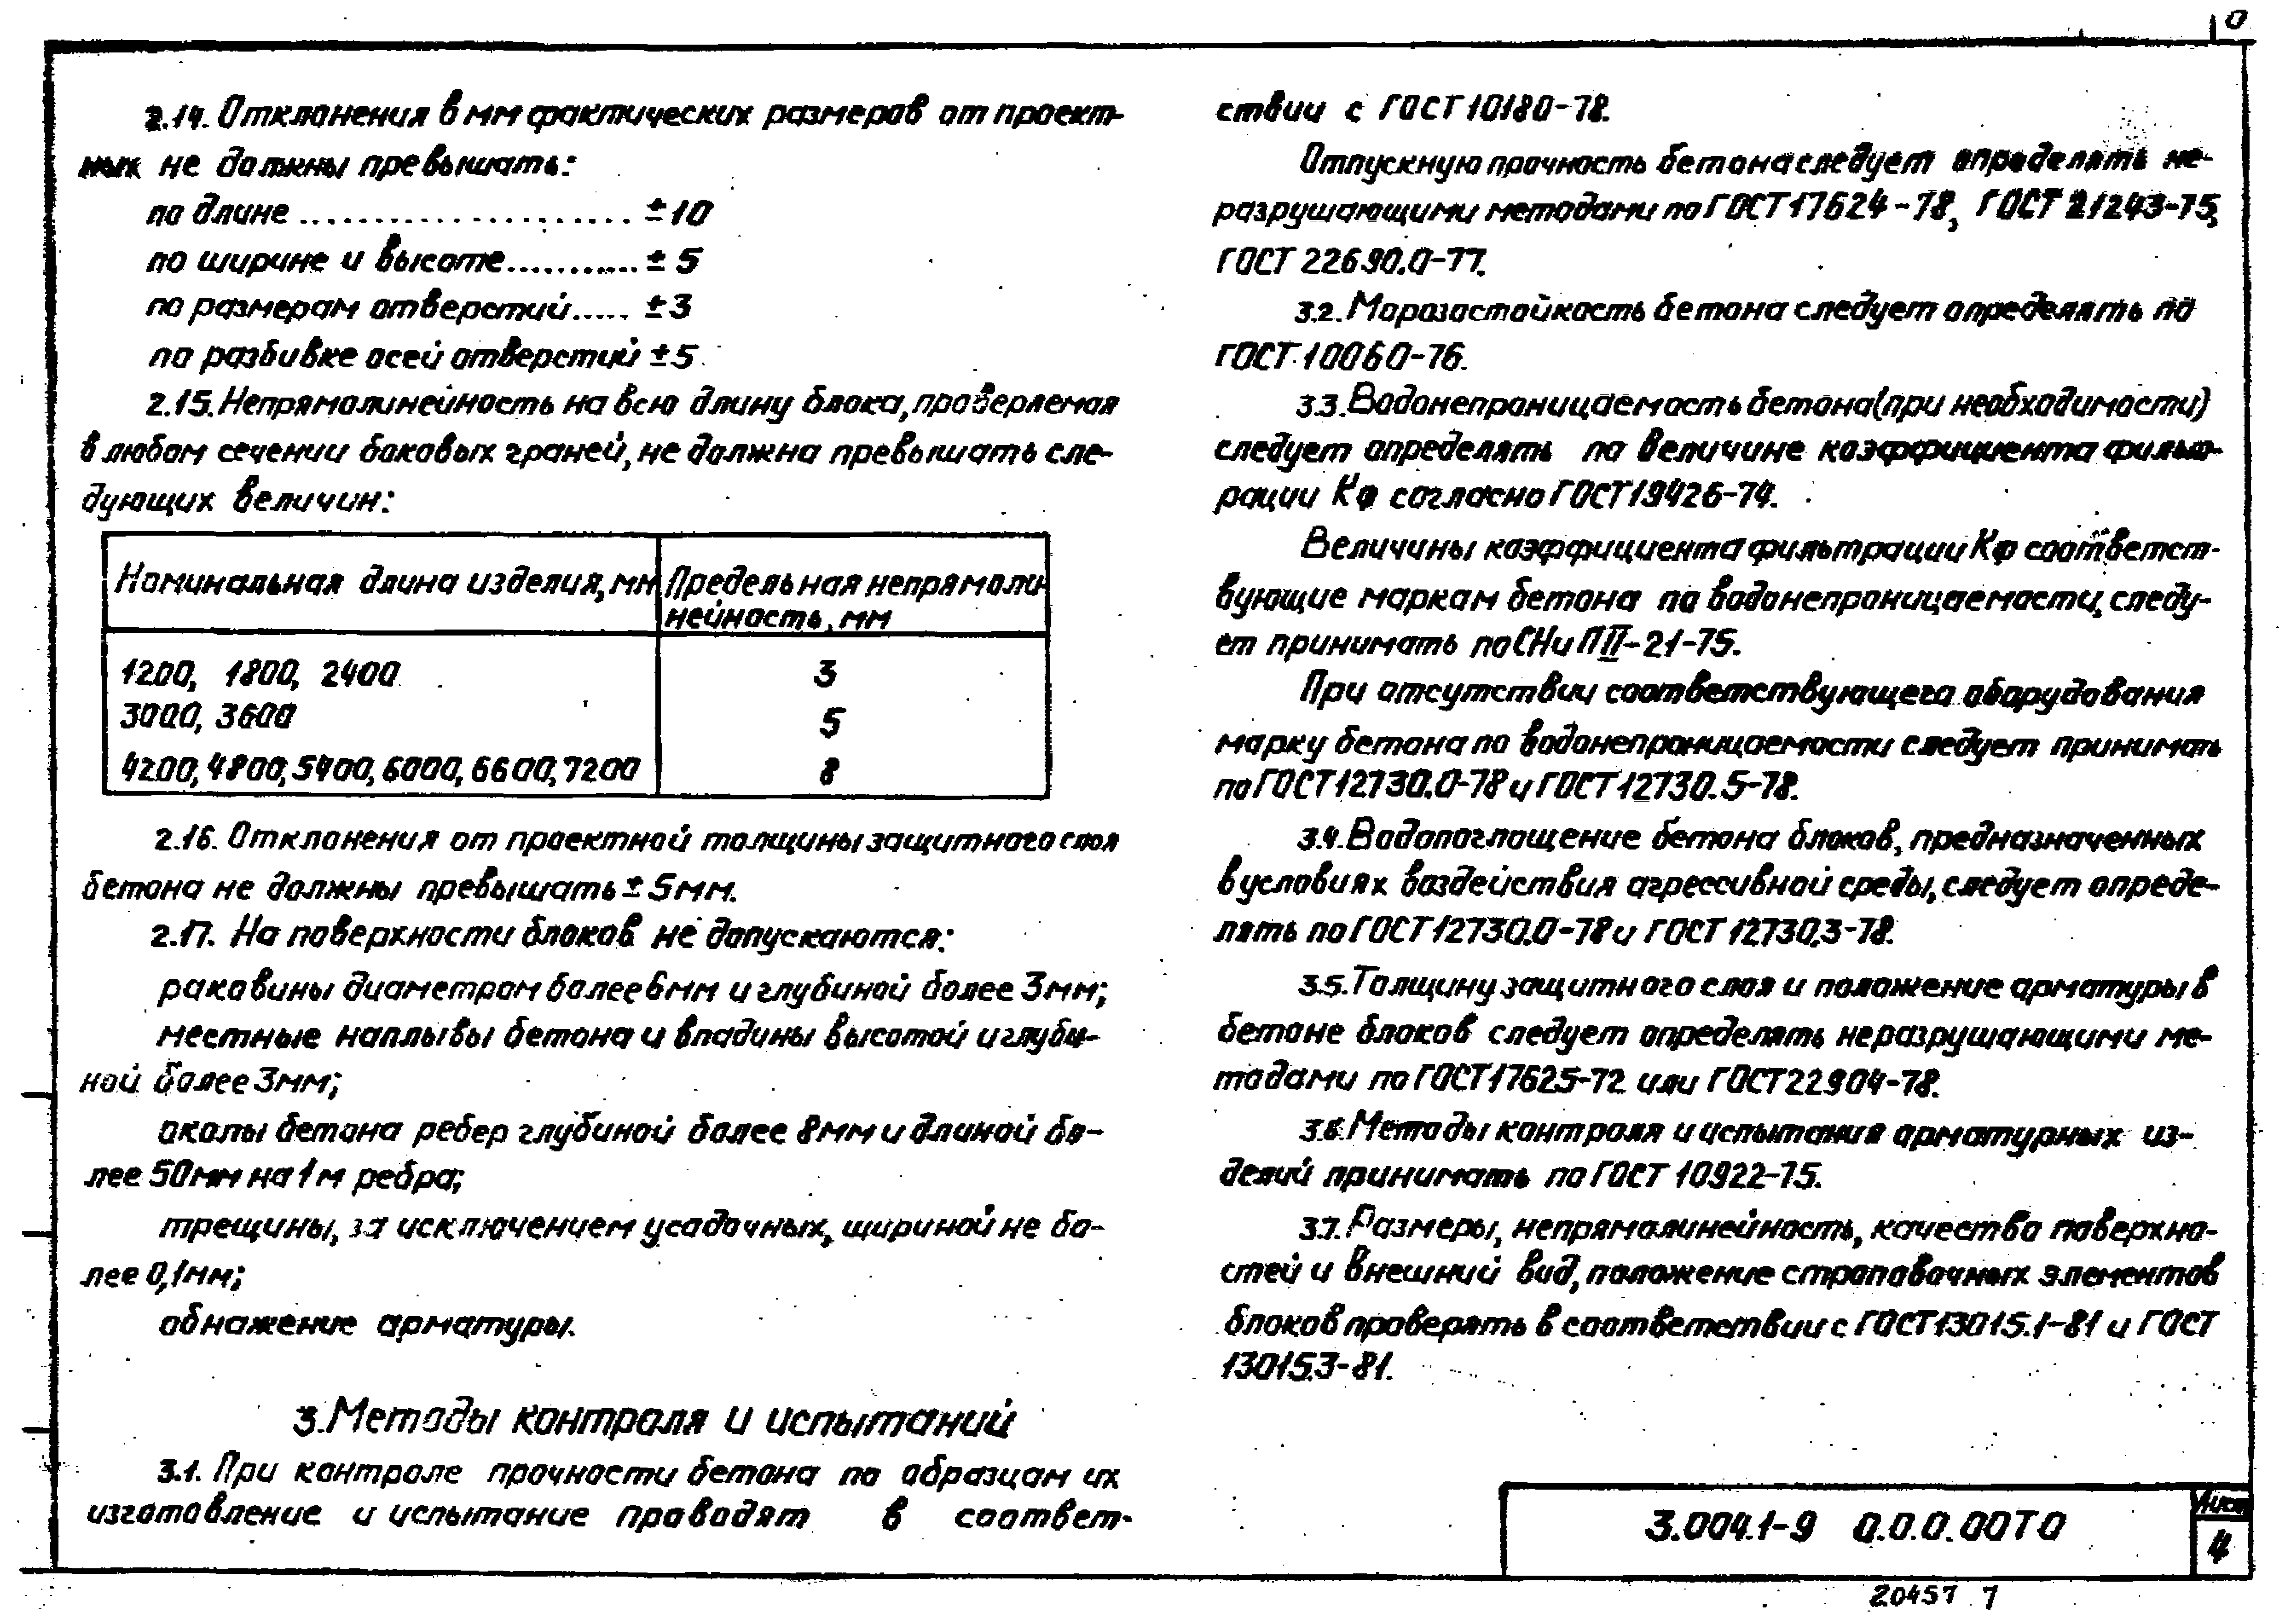 2.14. Отклонения в мм фактических размеров от проект-
ных не должны превышать:
по длине ..................... ±10
по ширине и высоте............ ±5
по размерам отверстий..... ±3
по разбивке осей отверстий ±5
2.15. Непрямолинейность на всю длину блока, проверяемая
в любом сечении боковых граней, не должна превышать сле-
дующих величин:
Номинальная длина изделия, мм
Предельная непрямоли-
нейность, мм
1200, 1800, 2400 3
3000, 3600 5
4200, 4800, 5400, 6000, 6600, 7200 8
2.16. Отклонения от проектной толщины защитного слоя
бетона не должны превышать ±5мм.
2.17. На поверхности блоков не допускаются:
раковины диаметром более 6мм и глубиной более 3мм;
местные наплывы бетона и впадины высотой и глуби-
ной более 3мм;
околы бетона ребер глубиной более 8мм и длиной бо-
лее 50мм на 1м ребра;
трещины, за исключением усадочных, шириной не бо-
лее 0,1мм;
обнажение арматуры.
3. Методы контроля и испытаний
3.1. При контроле прочности бетона по образцам их
изготовление и испытание проводят в соответ-
0
ствии с ГОСТ 10180-78.
Отпускную прочность бетона следует определять не-
разрушающими методами по ГОСТ 17624-78, ГОСТ 21243-75,
ГОСТ 22690.0-77.
3.2. Морозостойкость бетона следует определять по
ГОСТ 10060-76.
3.3. Водонепроницаемость бетона (при необходимости)
следует определять по величине коэффициента фильт-
рации Кф согласно ГОСТ 19426-74.
Величины коэффициента фильтрации Кф соответст-
вующие маркам бетона по водонепроницаемости, следу-
ет принимать по СНиП II-21-75.
При отсутствии соответствующего оборудования
марку бетона по водонепроницаемости следует принимать
по ГОСТ 12730.0-78 и ГОСТ 12730.5-78.
3.4. Водопоглощение бетона блоков, предназначенных
в условиях воздействия агрессивной среды, следует опреде-
лять по ГОСТ 12730.0-78 и ГОСТ 12730.3-78.
3.5. Толщину защитного слоя и положение арматуры в
бетоне блоков следует определять неразрушающими ме-
тодами по ГОСТ 17625-72 или ГОСТ 22904-78.
3.6. Методы контроля и испытания арматурных из-
делий принимать по ГОСТ 10922-75.
3.7. Размеры, непрямолинейность, качество поверхно-
стей и внешний вид, положение строповочных элементов
блоков проверять в соответствии с ГОСТ 13015.1-81 и ГОСТ
13015.3-81.
3.004.1-9 0.0.0.00ТО
Лист
4
20457 7